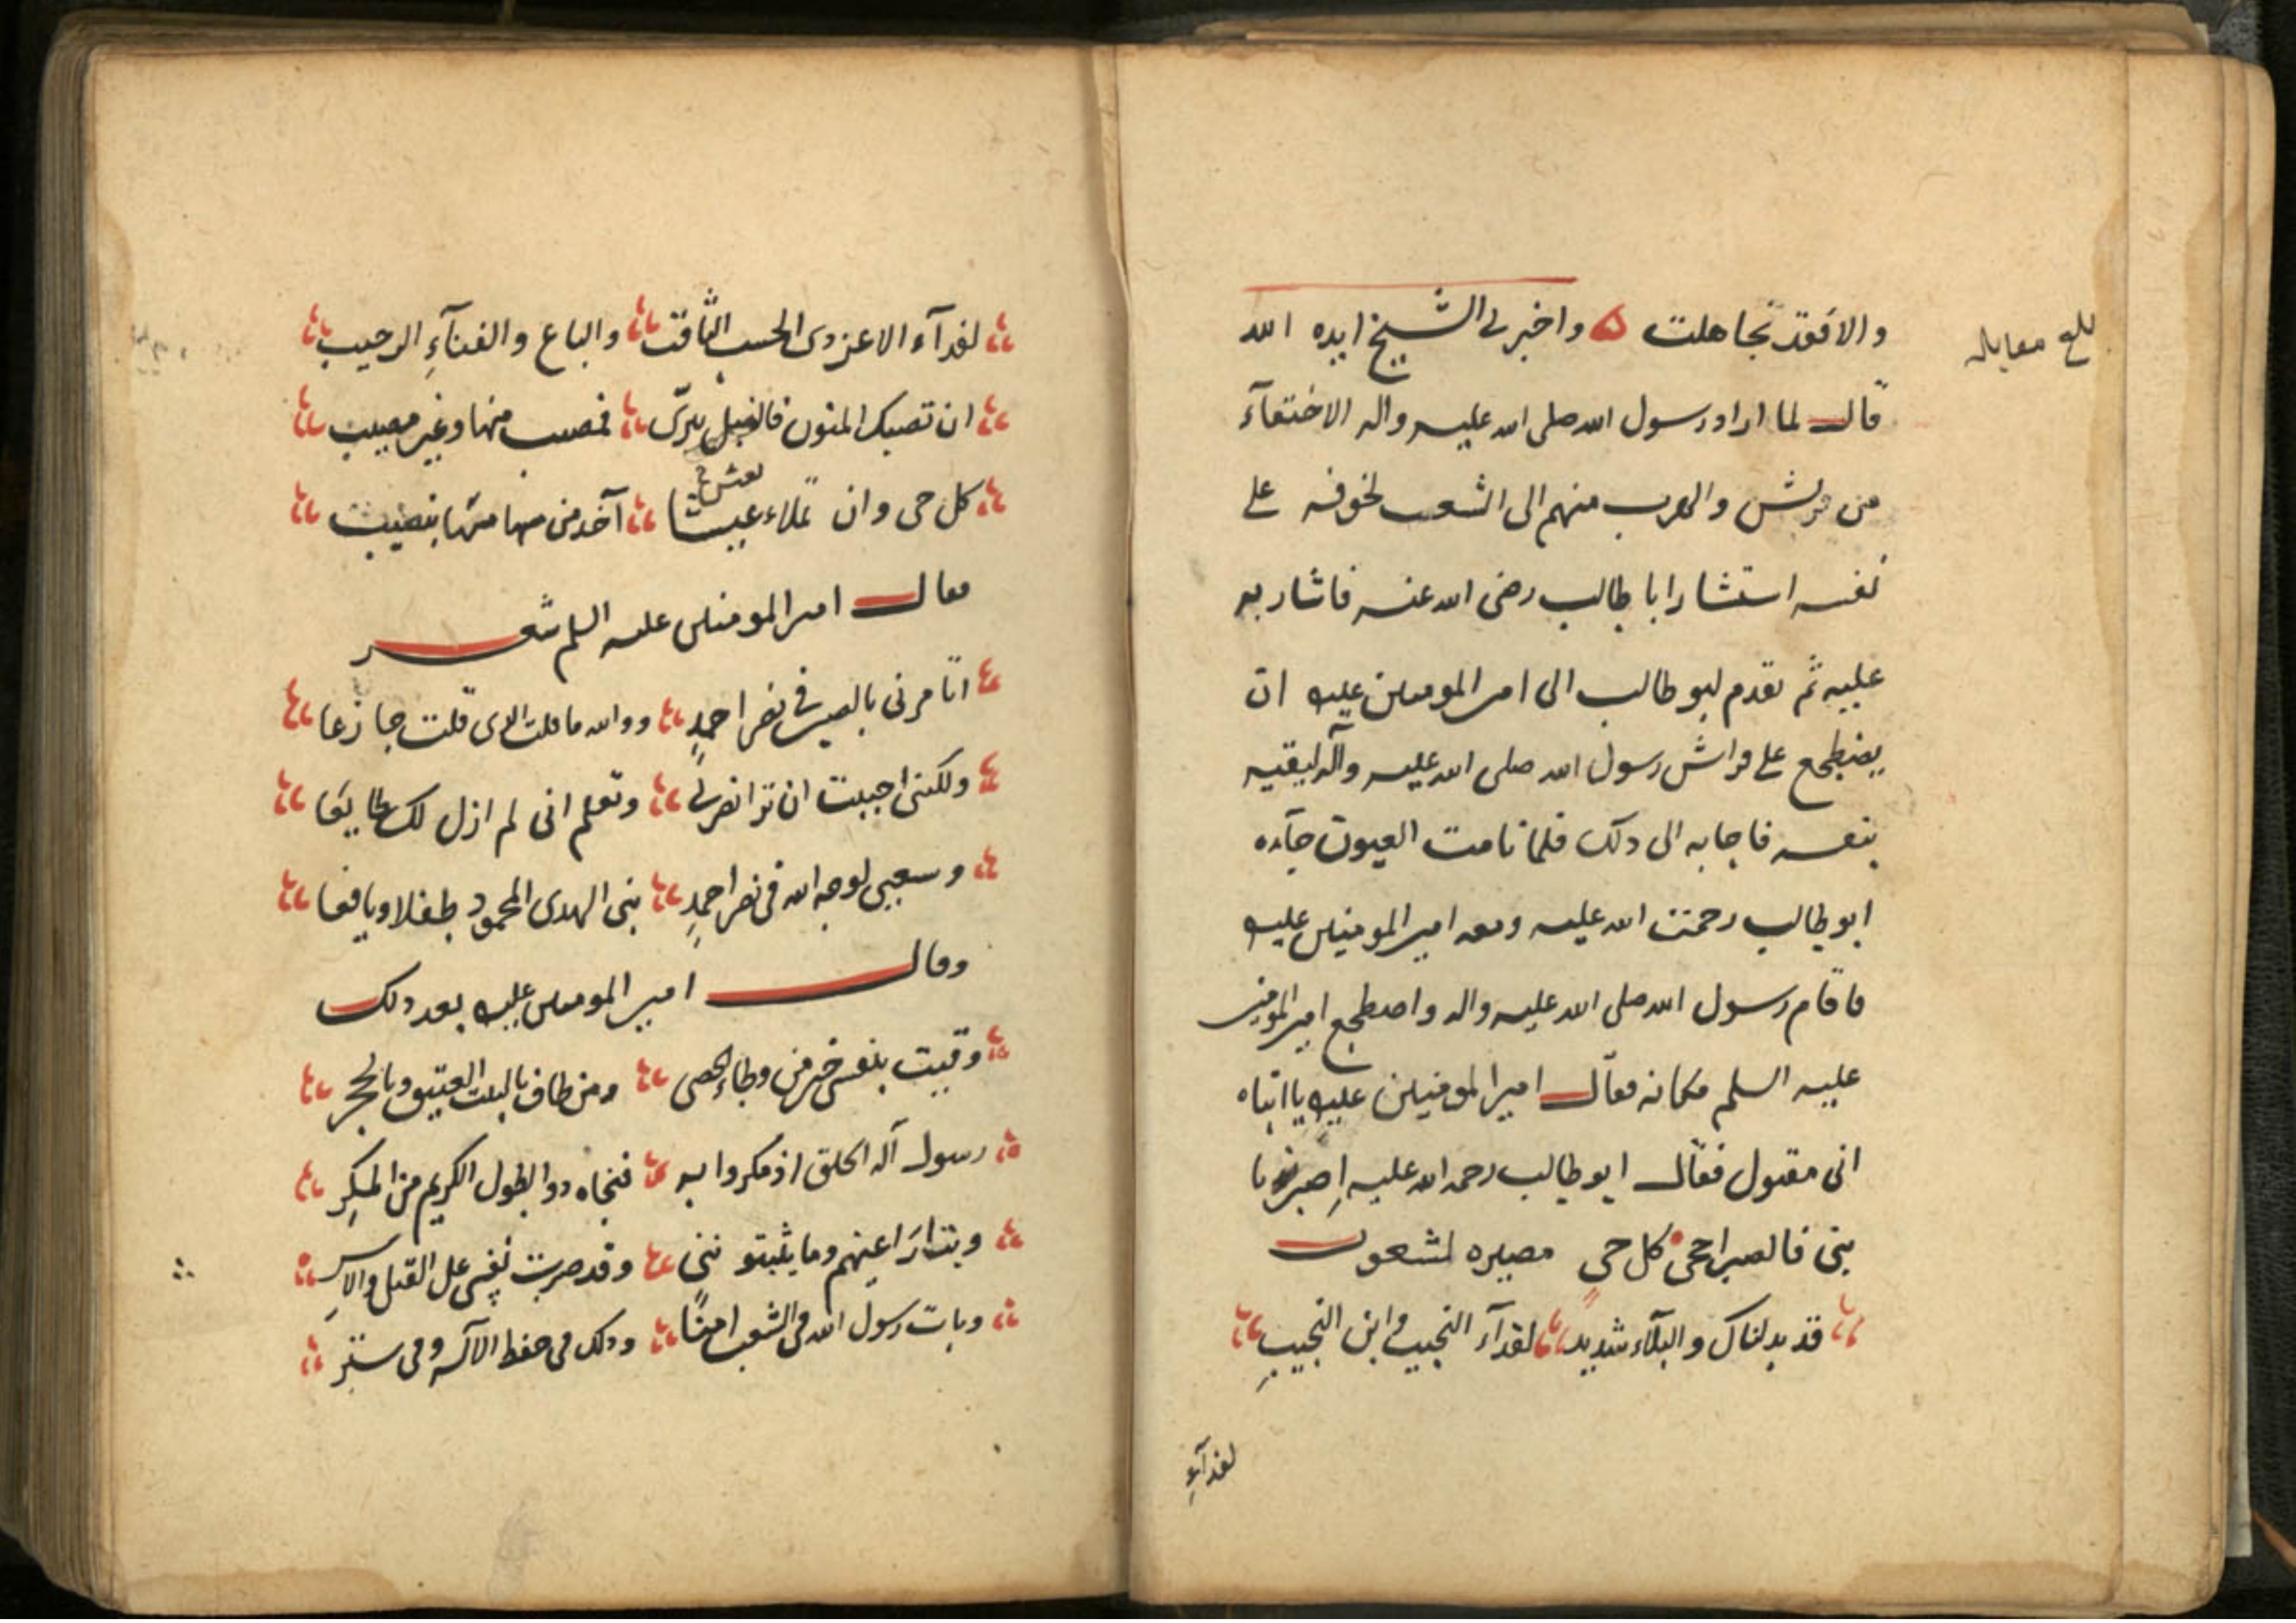 بلغ مقابله
والا فقد تجاهلت ه واخبرنى الشيخ ايده الله
قال لما اراد رسول الله صلى الله عليه واله الاختفآء
من قريش والهرب منهم الى الشعب لخوفه على
نفسه استشار ابا طالب رضى الله عنه فاشار به
عليه ثم تقدم ابو طالب الى امير المومنين عليه ان
يضطجع على فراش رسول الله صلى الله عليه وآله ليقيه
بنفسه فاجابه الى ذلك فلما نامت العيون جآءه
ابو طالب رحمت الله عليه ومعه امير المومنين عليه
فاقام رسول الله صلى الله عليه واله واضطجع امير المومنين
عليه السلم مكانه فقال امير المومنين عليه يا ابتاه
انى مقتول فقال ابو طالب رحمه الله عليه اِصبرن يا
بنى فالصبر احجى كل حي مصيره لشعوب
قد بذلناك والبلآء شديد لفدآء النجيب وابن النجيبِ
لفدآءِ
لفدآء الاعز ذى الحسب الثاقب والباع والفنآءِ الرحيب
ان تصبك المنون فالنبل تترى فمصيب منها وغير مصيب
كل حى وان تملاء عيشا آخذ من سهامها بنصيب
بعيش
فقال امير المومنين عليه السلم شعر
اتامرنى بالصبر فى نصر احمدٍ ووالله ما قلت الذى قلت جازعا
ولكننى احببت ان تر انصرتى وتعلم انى لم ازل لك طايعا
وسعيى لوجه الله فى نصر احمدٍ نبى الهدى المحمود طفلا ويافعا
وقال امير المومنين عليه بعد ذلك
وقيت بنفسى خير من وطاء الحصى ومن طاف بالبيت العتيق وبالحجر
رسول آله الخلق اذ مكروا به فنجاه ذو الطول الكريم من المكرِ
وبت اراعيهم وما يثبتو ننى وقد صبرت نفسى على القتل والاسرِ
وبات رسول الله فى الشعب امنًا وذلك فى حفظ الآله وفى ستر